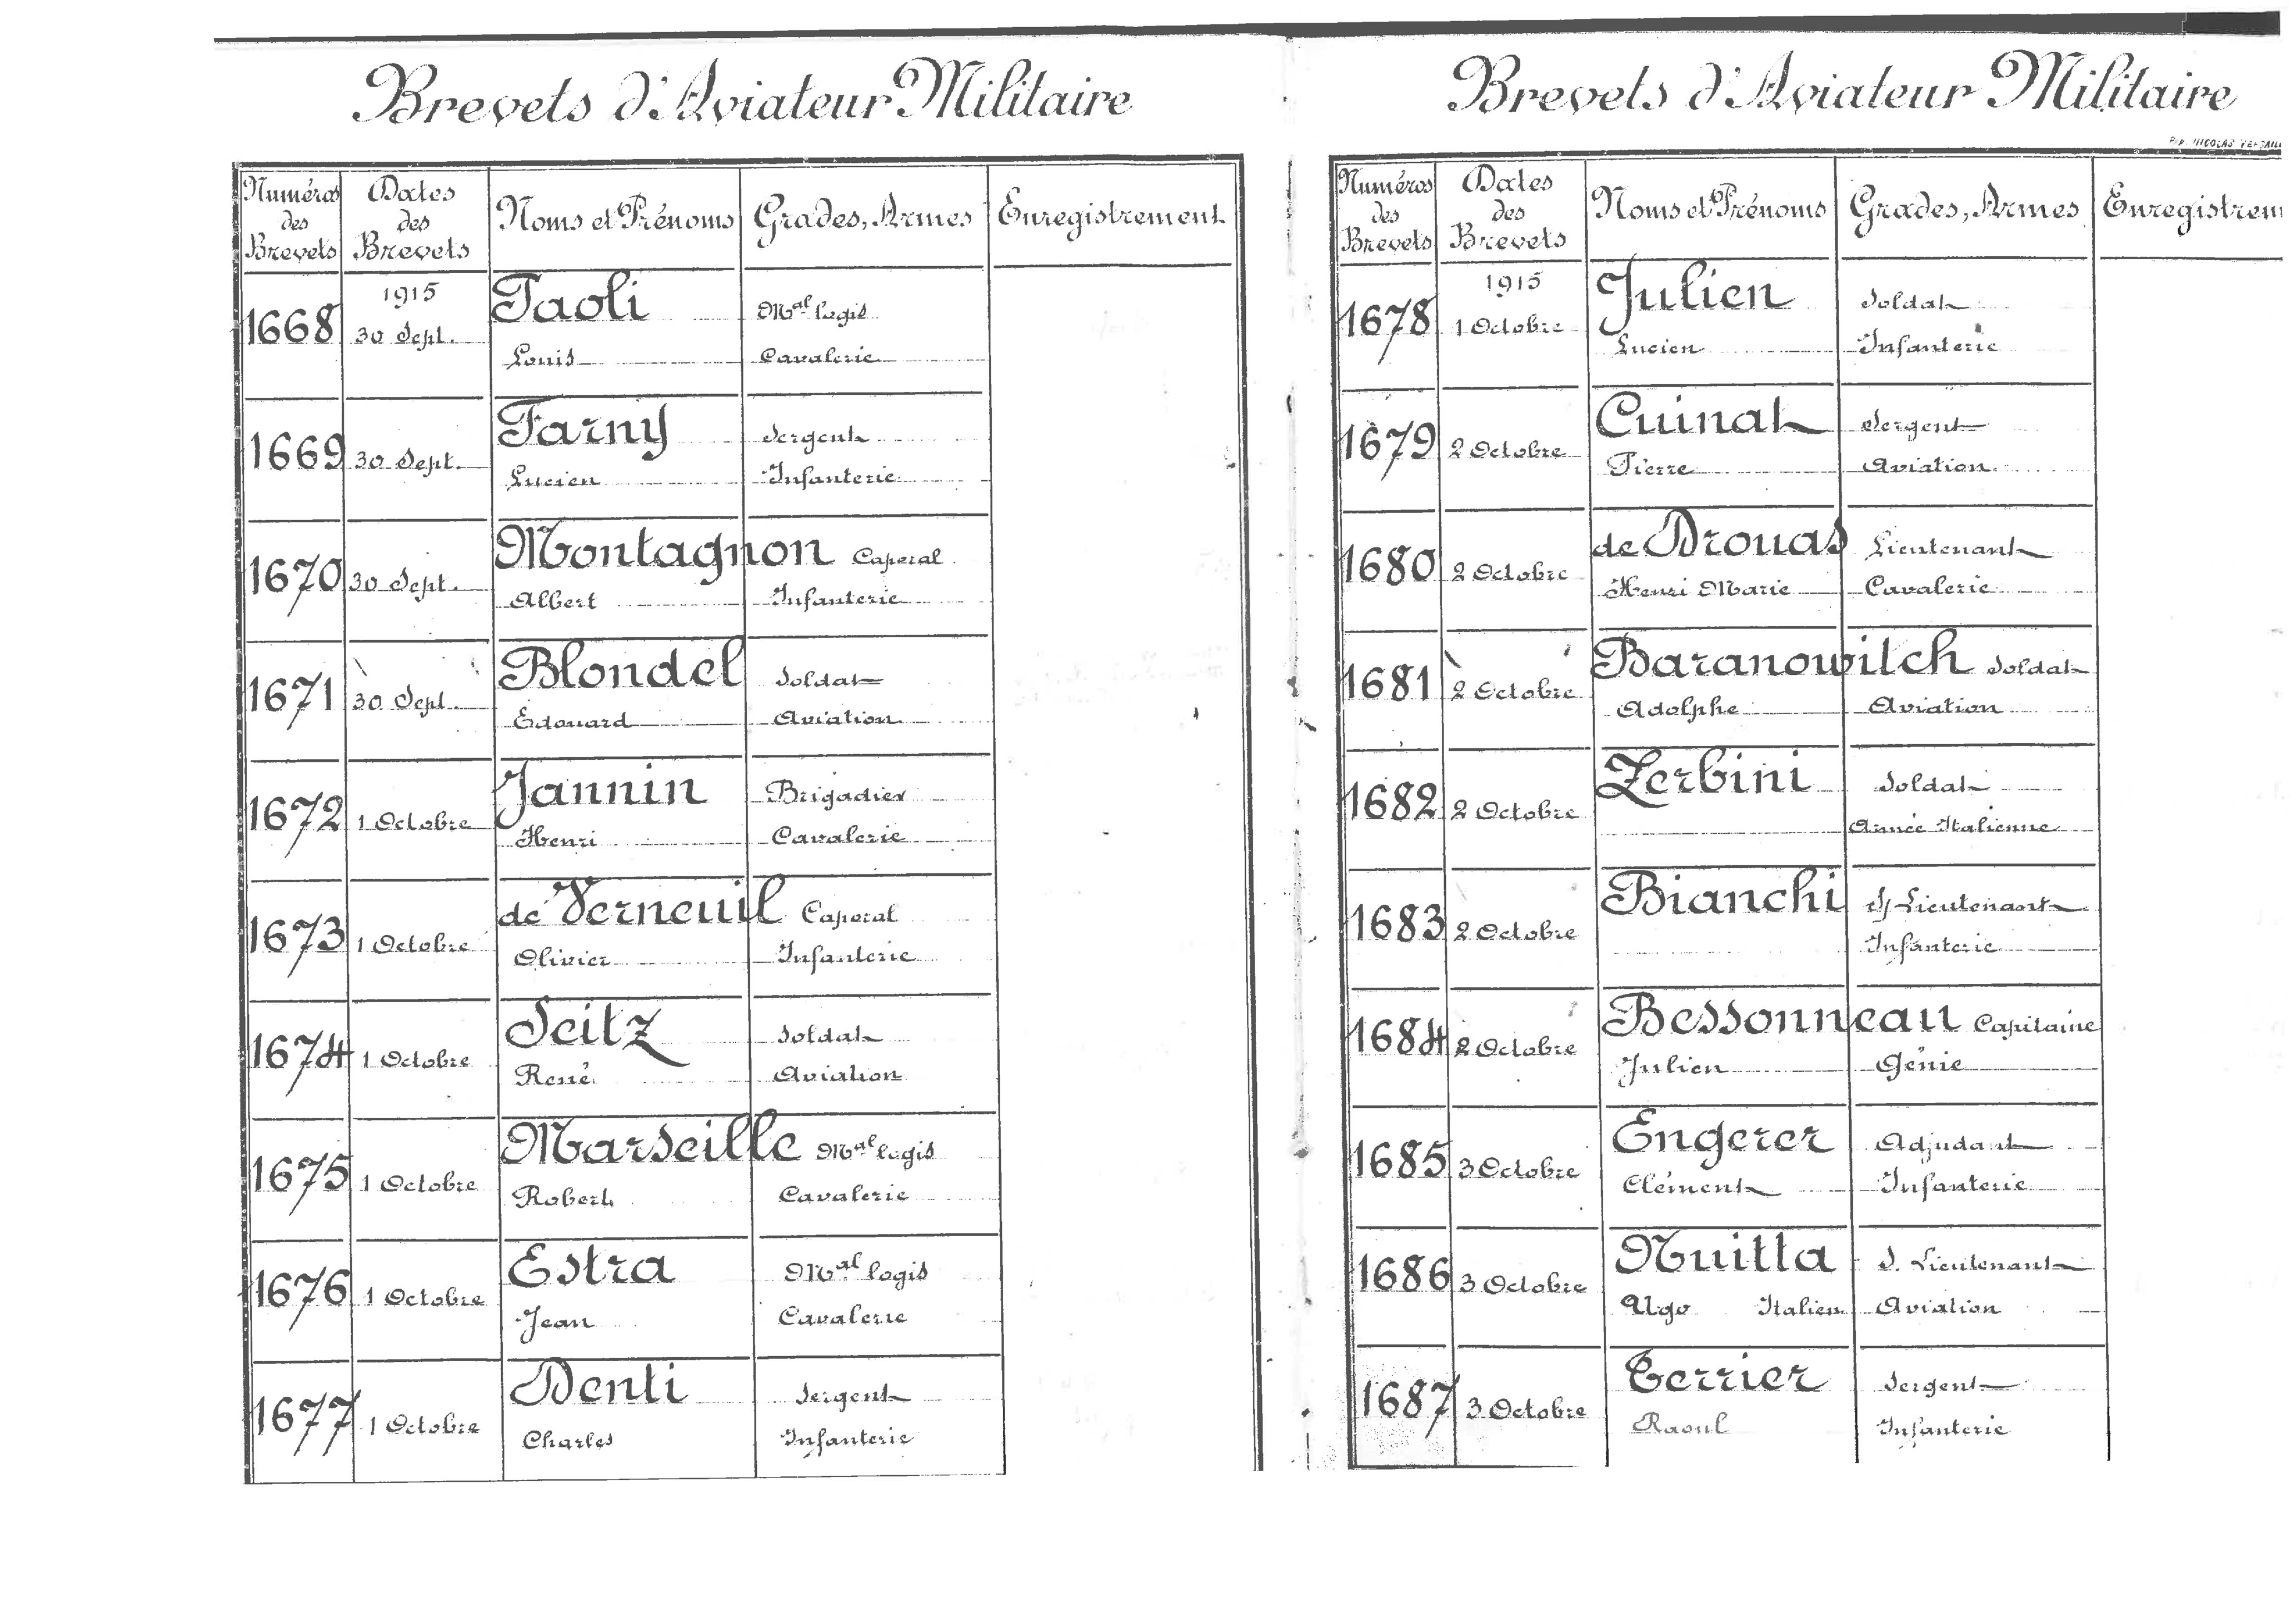 Brevets d'Aviateur Militaire
Numéros des Brevets
Dates des Brevets
Noms et Prénoms
Grades, Armes
Enregistrement
1668
1915
30 Sept.
Paoli
Louis
Mal logis
Cavalerie
1669
30 Sept.
Farny
Lucien
Sergent
Infanterie
1670
30 Sept.
Montagnon
Albert
Caporal
Infanterie
1671
30 Sept.
Blondel
Édouard
Soldat
Aviation
1672
1 Octobre
Jannin
Henri
Brigadier
Cavalerie
1673
1 Octobre
de Verneuil
Olivier
Caporal
Infanterie
1674
1 Octobre
Seitz
René
Soldat
Aviation
1675
1 Octobre
Marseille
Robert
Mal logis
Cavalerie
1676
1 Octobre
Estra
Jean
Mal logis
Cavalerie
1677
1 Octobre
Denti
Charles
Sergent
Infanterie
Brevets d'Aviateur Militaire
Numéros des Brevets
Dates des Brevets
Noms et Prénoms
Grades, Armes
Enregistrem
1678
1915
1 Octobre
Julien
Lucien
Soldat
Infanterie
1679
2 Octobre
Cuinat
Pierre
Sergent
Aviation
1680
2 Octobre
de Drouas
Henri Marie
Lieutenant
Cavalerie
1681
2 Octobre
Baranowitch
Adolphe
Soldat
Aviation
1682
2 Octobre
Zerbini
Soldat
Armée Italienne
1683
2 Octobre
Bianchi
S/Lieutenant
Infanterie
1684
2 Octobre
Bessonneau
Julien
Capitaine
Génie
1685
3 Octobre
Engerer
Clément
Adjudant
Infanterie
1686
3 Octobre
Nuitta
Ugo Italien
S. Lieutenant
Aviation
1687
3 Octobre
Terrier
Raoul
Sergent
Infanterie